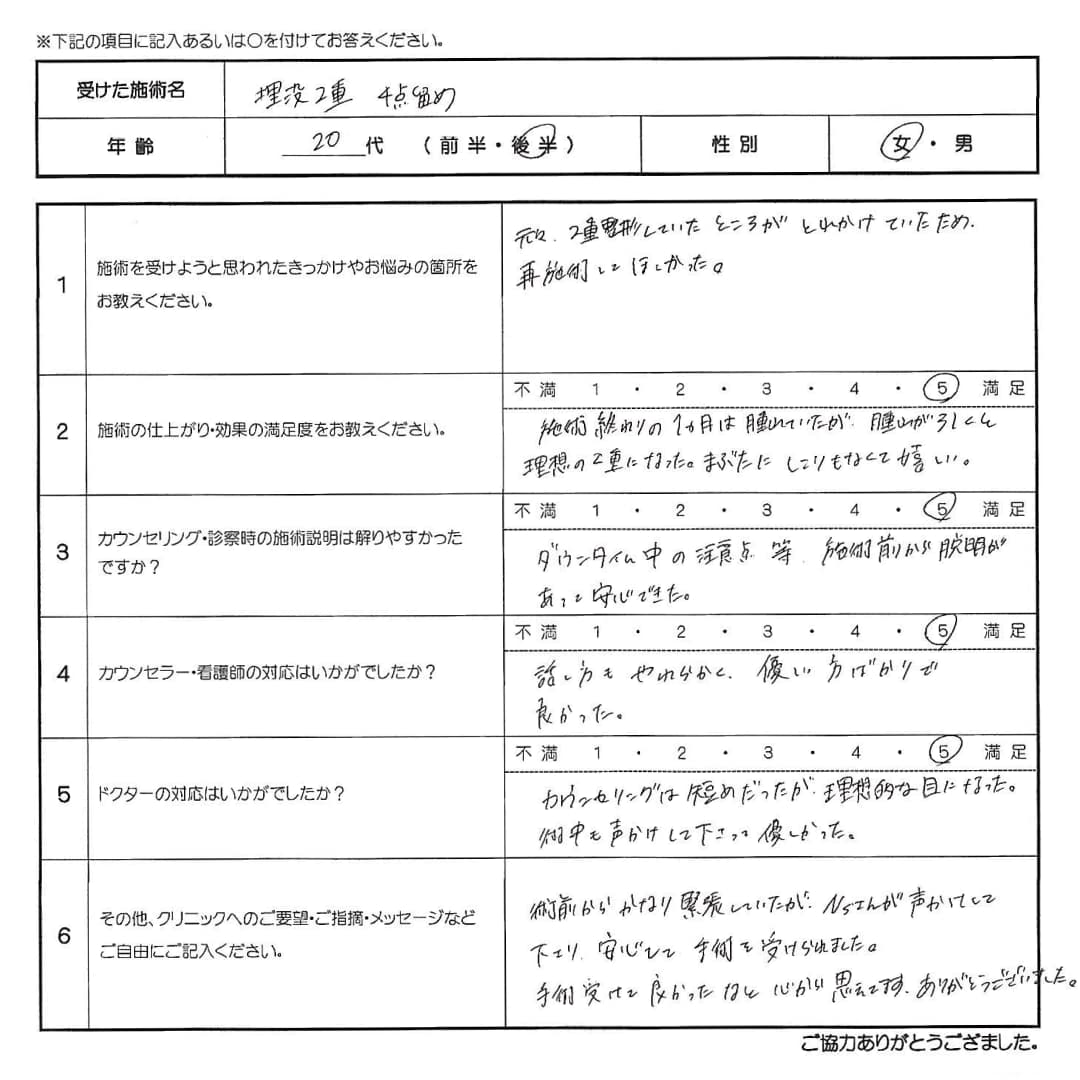 ※下記の項目に記入あるいは〇を付けてお答えください。
受けた施術名 埋没2重 4点留め
年齢 20代 (前半・後半) 性別 女・男
1 施術を受けようと思われたきっかけやお悩みの箇所を
お教えください。
元々、2重整形していたところがとれかけていたため、
再施術してほしかった。
2 施術の仕上がり・効果の満足度をお教えください。
不満 1・2・3・4・5 満足
施術終わりの1ヵ月は腫れていたが、腫れが引くと
理想の2重になった。まぶたにしこりもなくて嬉しい。
3 カウンセリング・診察時の施術説明は解りやすかった
ですか?
不満 1・2・3・4・5 満足
ダウンタイム中の注意点等、施術前から説明が
あって安心できた。
4 カウンセラー・看護師の対応はいかがでしたか?
不満 1・2・3・4・5 満足
話し方もやわらかく、優しい方ばかりで
良かった。
5 ドクターの対応はいかがでしたか?
不満 1・2・3・4・5 満足
カウンセリングは短めだったが、理想的な目になった。
術中も声かけして下さって優しかった。
6 その他、クリニックへのご要望・ご指摘・メッセージなど
ご自由にご記入ください。
術前からかなり緊張していたが、Nsさんが声かけして
下さり、安心して手術を受けられました。
手術受けて良かったなと心から思えてます、ありがとうございました。
ご協力ありがとうござました。